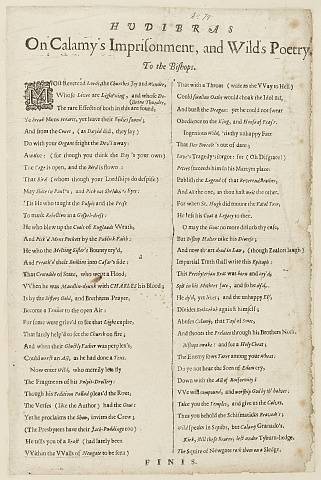 HUDIBRAS
On Calamy's Imprisonment, and Wild's Poetry.
To the Bishops.
MOst Reverend Lords, the Churches Joy and Wonder,
Whose Lives are Light'ning, and whose Doctrine Thunder,
The rare Effects of both in this are found,
Ye break Mens
And from the Cover, (as David did, they say)
Do with your Organs fright the Dev'l away:
Awake: (for though you think the Day's your own)
The Cage is open, and the Bird is flown:
That Bird (whom though your Lordships do despise)
May Shite in Paul's, and Pick out Sheldon's Eyes:
'Tis He who taught the Pulpit and the Press
To mask Rebellion in a Gospel-dress:
He who blew up the Coals of Englands Wrath,
And Pick'd Mens Pocket by the Publick Faith:
He who the Melting Sister's Bounty try'd,
And Preach'd their Bodkins into Cæsar's side:
That Crocodile of State, who wept a Flood,
VVhen he was Maudlin-drunk with CHARLES his Blood;
Is by the Sisters Gold, and Brethrens Prayer,
Become a Tenant to the open Air:
For some were griev'd to see that Light expire,
That lately help'd to set the Church on fire;
And when their Ghostly Father was perplex'd,
Could worst an Ass, as he had done a Text.
Now enter Wild, who merrily lets fly
The Fragments of his Pulpit-Drollery:
Though his Sedition Failed
The Verses (like the Author) had the Gout:
Yet he proclaims the Show, invites the Crew,
(The Presbyters have their Jack-Puddings too)
He tells you of a Beast (had lately been
VVithin the VValls of Newgate to be seen)
That with a Throat (wide as the VVay to Hell)
Could swallow Oaths would choak the Idol Bel,
And burst the Dragon: yet he could not swear
Obedience to the King, and House of Pray'r.
Ingenious Wild, 'tis thy unhappy Fate
That Iter Boreale's out of date;
Love's Tragedy's forgot: for (Oh Disgrace!)
Peters succeeds him in his Martyrs place:
Publish the Legend of that Reverend Brother,
And Act the one, as thou hast writ the other.
For when St. Hugh did mount the Fatal Tree,
He left his Coat a Legacy to thee.
O may the Gout no more disturb thy ease,
But Bishop Halter take his Diocess;
And now thy art dead in Law, (though Zealots laugh)
Impartial Truth shall write this Epitaph:
This Presbyterian Brat was born and cry'd,
Spit in his Mothers face, and so he dy'd.
He dy'd, yet lives; and the unhappy Elf,
Divides Beelzebub against himself;
Abuses Calamy, that Tail of Smec,
And shoots the Prelate through his Brothers Neck.
Bishops awake: and see a Holy Cheat;
The Enemy sows Tares among your wheat:
Do ye not hear the Sons of Edom cry,
Down with the Act of Uniformity:
VVe will compound, and worship God by th' halves;
Take you the Temples, and give us the Calves.
Thus you behold the Schismaticks Bravado's;
Wild speaks in Squibs, but Calamy Granado's.
Kirk, still these Boutes, left under Tyburn-hedge,
The Squire of Newgate rock them on a Sledge.
FINIS.